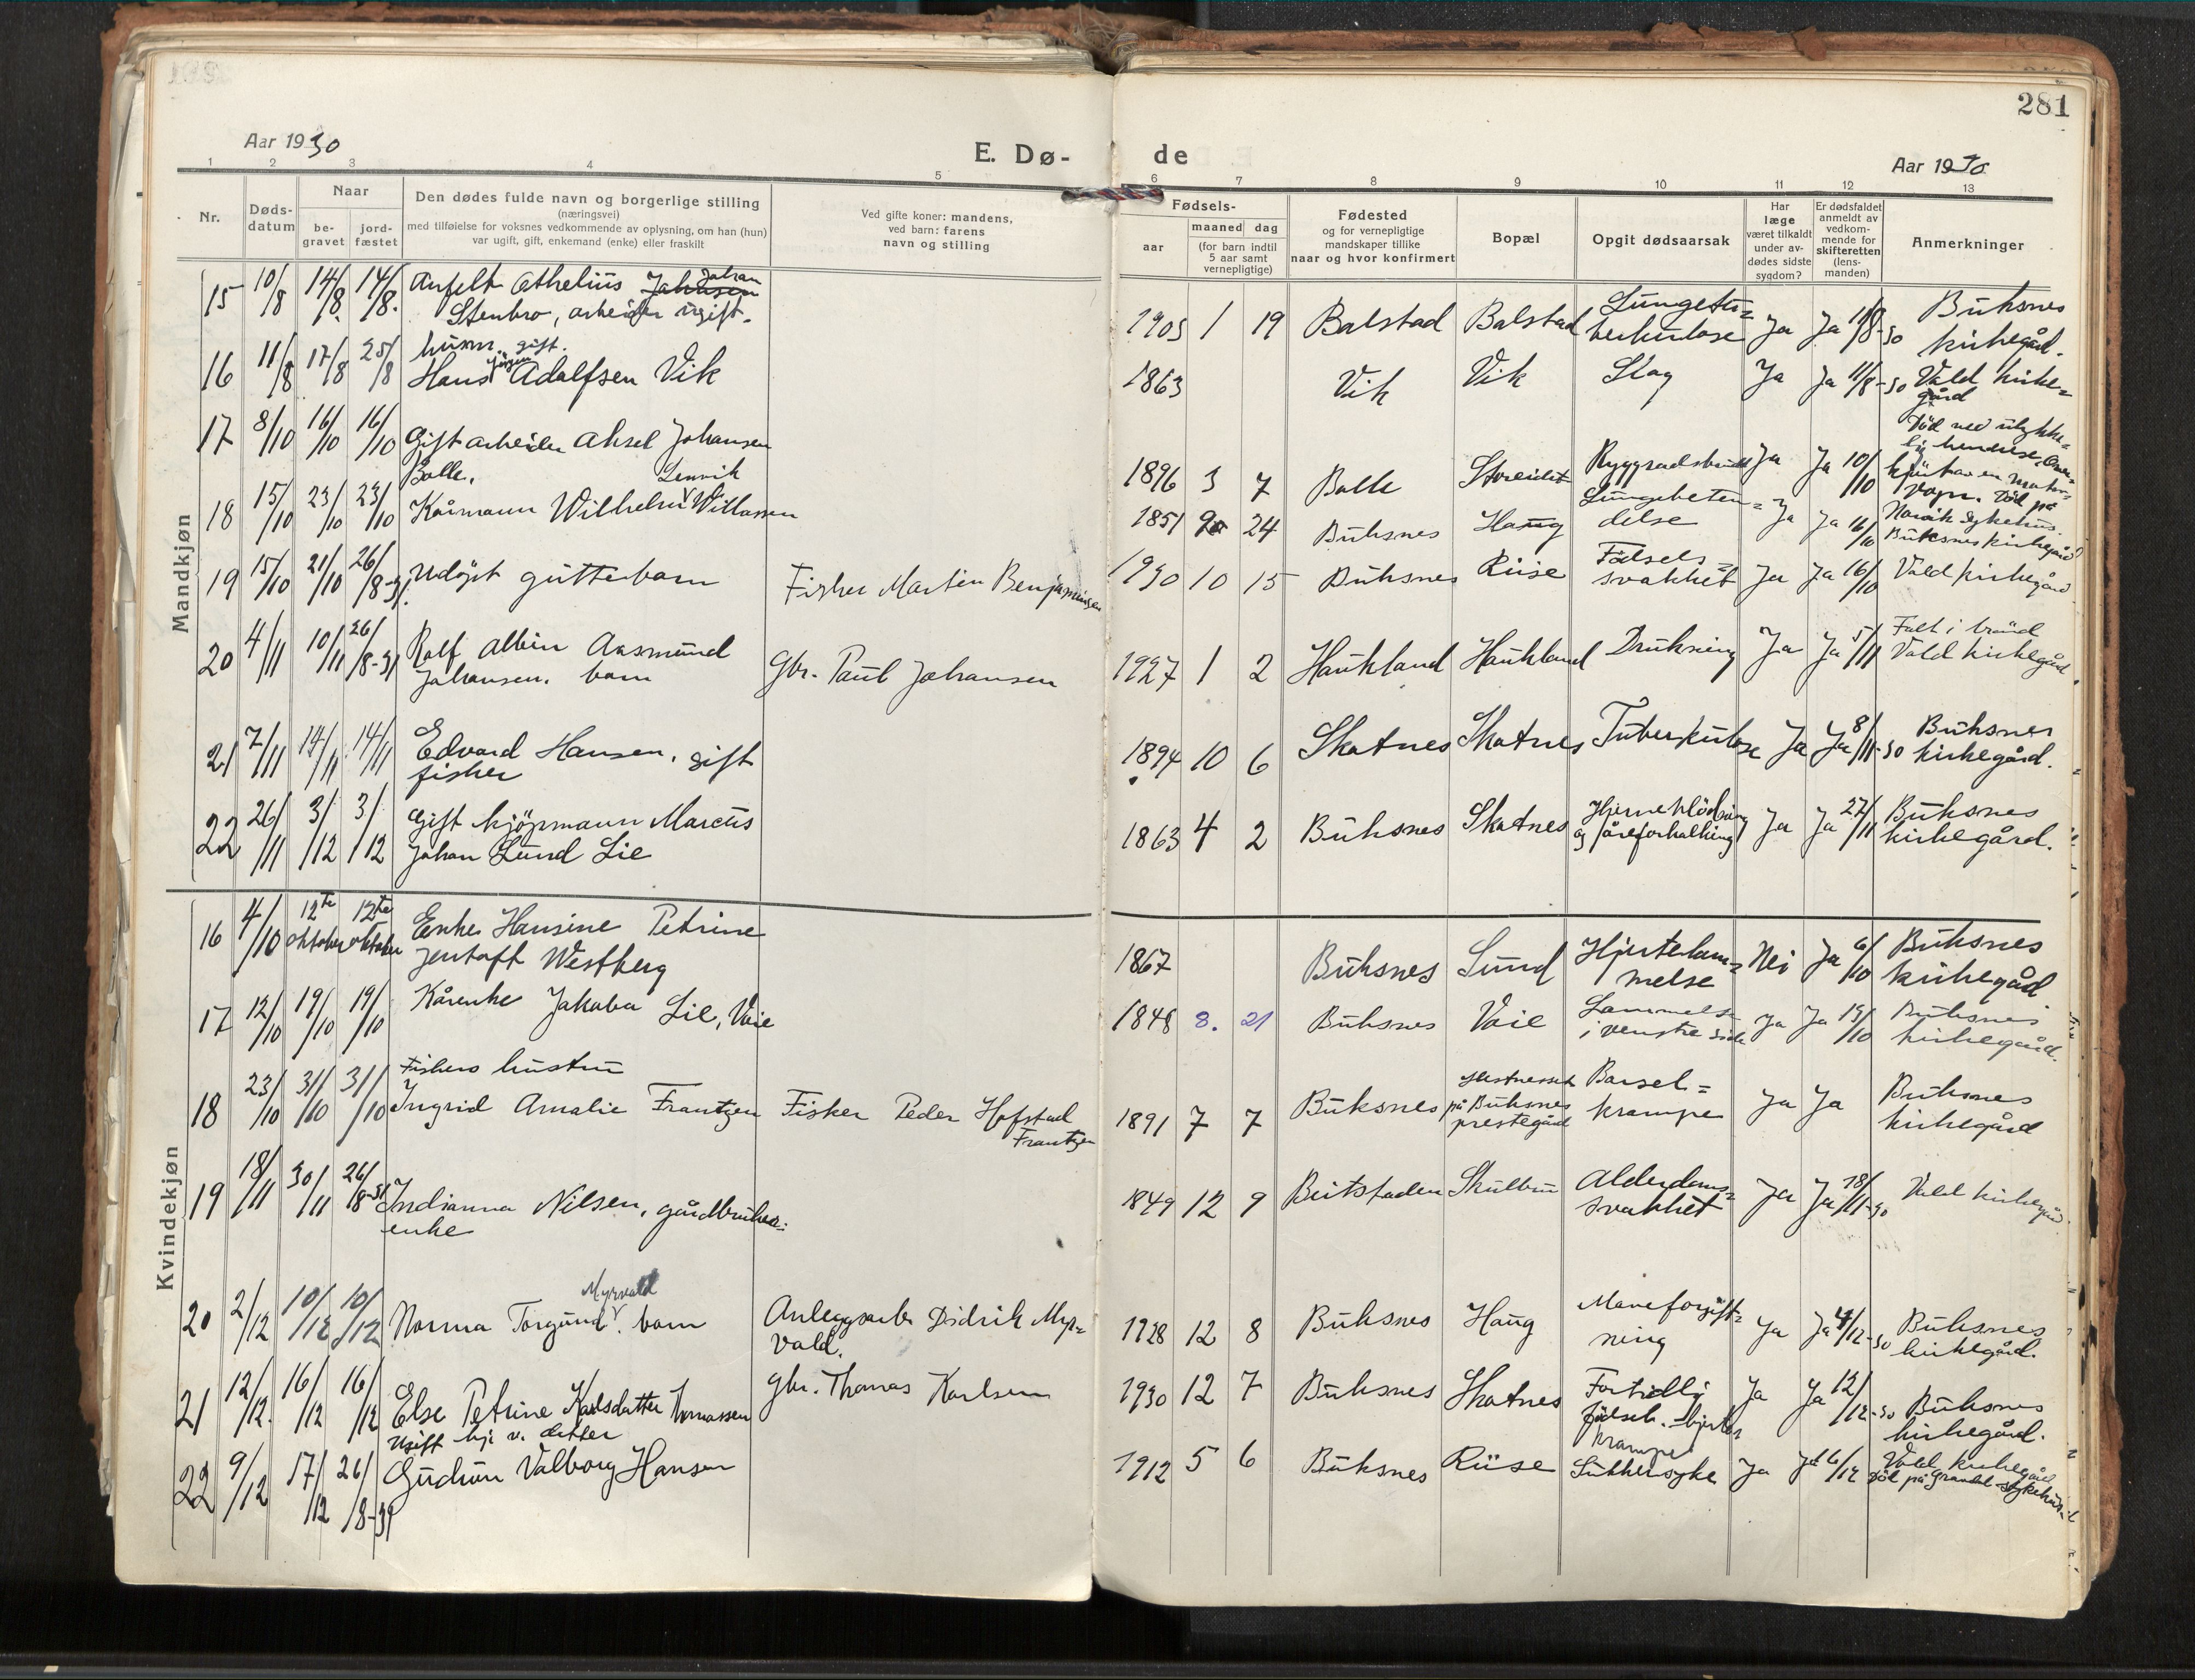 281
Aar 1930
E. Dø-
de
Aar 1930
1 2 3 4 5 6 7 8 9 10 11 12 13
Nr.
Døds-
datum
Naar
be-
gravet
jord-
fæstet
Den dødes fulde navn og borgerlige stilling
(næringsvei)
med tilføielse for voksnes vedkommende av oplysning, om han (hun)
var ugift, gift, enkemand (enke) eller fraskilt
Ved gifte koner: mandens,
ved barn: farens
navn og stilling
Fødsels-
aar
maaned dag
(for barn indtil
5 aar samt
vernepligtige)
Fødested
og for vernepligtige
mandskaper tillike
naar og hvor konfirmert
Bopæl
Opgit dødsaarsak
Har
læge
været tilkaldt
under av-
dødes sidste
sygdom?
Er dødsfaldet
anmeldt av
vedkom-
mende for
skifteretten
(lens-
manden)
Anmerkninger
Mandkjøn
15 10/8 14/8. 14/8. Anfelt Athelius Johansen Johan
Stenbro, arbeider ugift.
1905 1 19 Balstad Balstad Lungetu=
berkulose Ja Ja 11/8-30 Buksnes
kirkegård.
16 11/8 17/8 25/8 husm. gift.
Hans Jörgen Adolfsen Vik
1863 Vik Vik Slag Ja Ja 11/8-30 Vold kirke=
gård
17 8/10 16/10 16/10 Gift arbeider Aksel Johansen
Bolle.
1896 3 7 Bolle Storeidet Ryggradsbrudd Ja Ja 10/10 Död ved ulykke=
lig hendelse,
en motor=
vogn. Död på
Narvik sykehus.
18 15/10 23/10 23/10 Kårmann Wilhelm Lenvik Willassen
1851 9 24 Buksnes Haug Lungebeten=
delse Ja Ja 16/10 Buksnes kirkegård
19 15/10 21/10 26/8-31. Udöpt guttebarn Fisker Martin Benjaminsen
1930 10 15 Buksnes Ruse Födsels=
svakhet Ja Ja 16/10 Vold kirkegård
20 4/11 10/11 26/8-31 Rolf Albin Aasmund
Johansen. barn Gbr. Paul Johansen
1927 1 2 Haukland Haukland Drukning Ja Ja 5/11 Falt i brönd
Vold kirkegård.
21 7/11 14/11 14/11 Edvard Hansen, gift
fisker
1894 10 6 Skotnes Skotnes Tuberkulose Ja Ja 8/11-30 Buksnes
kirkegård.
22 26/11 3/12 3/12 Gift kjöpmann Marcus
Johan Lund Lie
1863 4 2 Buksnes Skotnes Hjerneblödning
og åreforkalkning Ja Ja 27/11 Buksnes
kirkegård.
Kvindekjøn
16 4/10 12te oktober 12te oktober Enke Hansine Petrine
Jentoft Westberg
1867 Buksnes Sund Hjertelam=
melse Nei Ja 6/10 Buksnes
kirkegård
17 12/10 19/10 19/10 Kårenke Jakoba Lie, Voie
1848 8. 21 Buksnes Voie Lammelse
i venstre side Ja Ja 15/10 Buksnes
kirkegård.
18 23/10 31/10 31/10 Fiskers hustru
Ingrid Amalie Frantzen Fisker Peder Hofstad
Frantzen
1891 7 7 Buksnes
på Buksnes
prestegård Barsel=
krampe Ja Ja Buksnes
kirkegård
19 18/11 30/11 26/8-31 Indianna Nilsen, gårdbruker-
enke
1849 12 9 Beitstaden Skulbru Alderdoms=
svakhet Ja Ja 18/11-30 Vold kirkegård
20 2/12 10/12 10/12 Norma Torgund Myrvold. barn Anleggsarb. Didrik Myr=
vold.
1928 12 8 Buksnes Haug Maveforgift=
ning Ja Ja 4/12-30 Buksnes
kirkegård.
21 12/12. 16/12 16/12 Else Petrine Karlsdatter Thomassen gbr. Thomas Karlsen
1930 12 7 Buksnes Skotnes Fortidlig
födsel. hjerte=
krampe Ja Ja 12/12-30 Buksnes
kirkegård.
22 9/12 17/12 26/8-31 Ugift hj. v. datter
Gudrun Valborg Hansen
1912 5 6 Buksnes Ruse Sukkersyke Ja Ja 16/12 Vold kirkegård
Död på Gravdal sykehus.